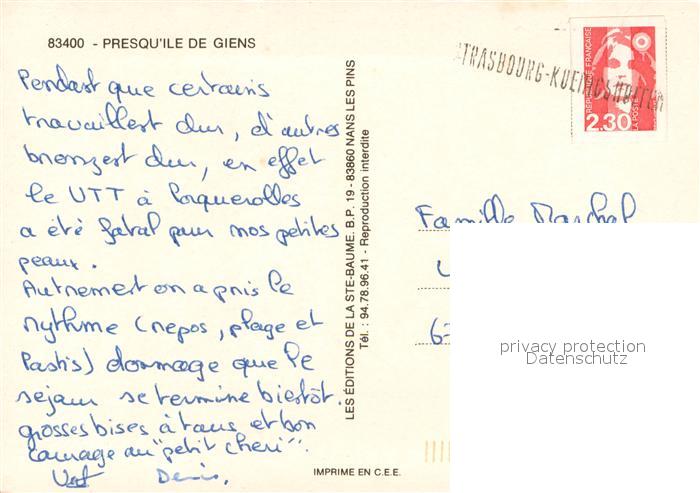 83400 - PRESQU'ILE DE GIENS
Pendant que certains
travaillent dur, d'autres
bronzent dur, en effet
le VTT à Porquerolles
a été fatal pour nos petites
peaux.
Autrement on a pris le
rythme (repos, plage et
Pastis) dommage que le
séjour se termine bientôt.
grosses bises à tous et bon
courage au "petit chéri".
Denis,
LES ÉDITIONS DE LA STE-BAUME. B.P. 19 - 83860 NANS LES PINS
Tél. : 94.78.96.41 - Reproduction interdite
IMPRIME EN C.E.E.
STRASBOURG-KOENIGSHOFFEN
REPUBLIQUE FRANÇAISE
2,30
LA POSTE
Famille
67
privacy protection
Datenschutz